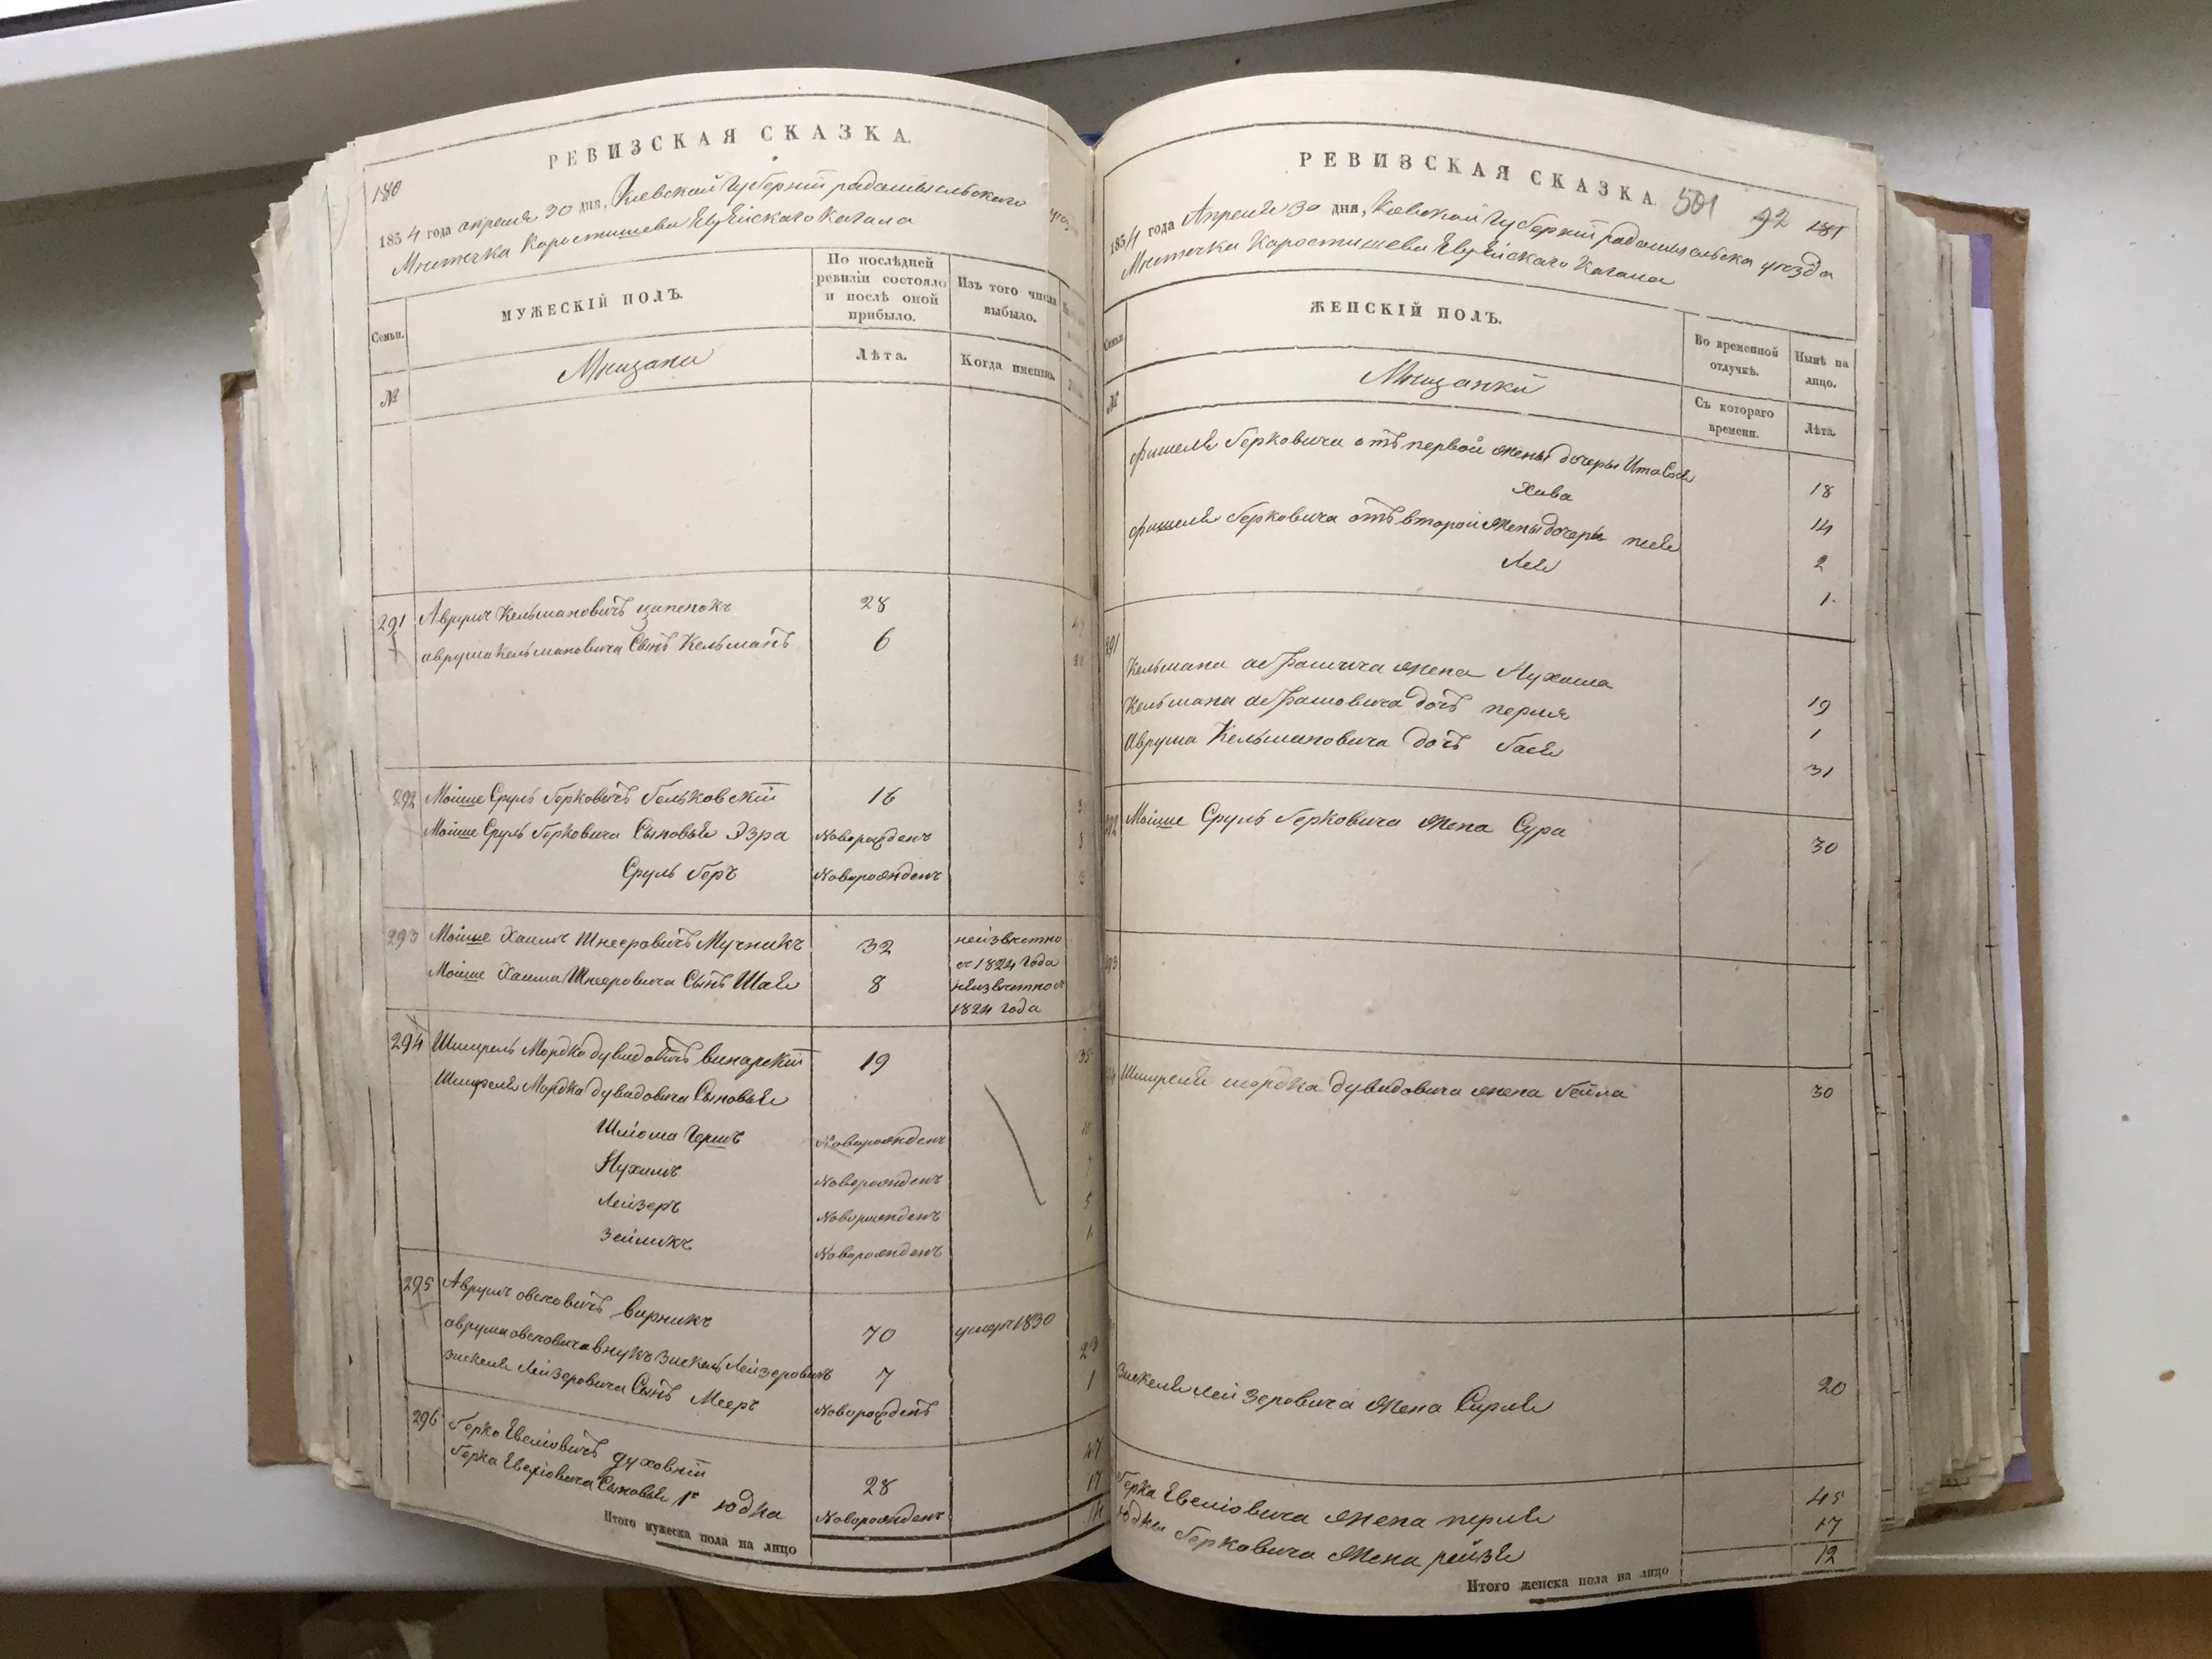 РЕВИЗСКАЯ СКАЗКА.
180
1854 года апреля 30 дня, Киевской Губернїи радомысльскаго
Мистечка Коростишева Еврейскаго Кагала
Семьи.
МУЖЕСКІЙ ПОЛЪ.
По послѣдней ревизіи состояло и послѣ оной прибыло.
Изъ того числа выбыло.
№
Мищани
Лѣта.
Когда именно.
291 Аврумъ Кельмановичъ ципенокъ 28
аврума Кельмановича Сынъ Кельманъ 6
292 Мойше Сруль Берковичъ Бельковскїй 16
Мойше Сруль Берковича Сыновья Эзра Новорожденъ
Сруль Беръ Новорожденъ
293 Мойше Хаимъ Шнееровичъ Мучникъ 32 неизвестно
съ 1824 года
Мойше Хаима Шнееровича Сынъ Шая 8 неизвестно съ
1824 года
294 Шмирель Мордка дувидовичъ винарскїй 19 35
Шмиреля Мордка дувидовича Сыновья
Шліома Гершъ Новорожденъ
Нухимъ Новорожденъ
Лейзеръ Новорожденъ 5
Зейликъ Новорожденъ 1
295 Аврумъ овсеовичъ вирникъ 70 умеръ 1830
аврума овсеовича внукъ Зискель Лейзеровичъ 7 23
Зискеля Лейзеровича Сынъ Мееръ Новорожденъ 1
296 Берко Евелїовичъ духовнїй 28 47
Берка Евелїовича Сыновья 1й Юдка Новорожденъ 17
Итого мужеска пола на лицо
РЕВИЗСКАЯ СКАЗКА.
501 92 181
1854 года Апреля 30 дня, Киевской Губернїи радомысльска уезда
Мистечка Коростишева Еврейскаго Кагала
ЖЕНСКІЙ ПОЛЪ.
Во временной отлучкѣ.
Нынѣ на лицо.
№
Мищанки
Съ котораго времени.
Лѣта.
фишеля Берковича отъ первой жены дочеры Ита Бася 18
Хава 14
фишеля Берковича отъ второй жены дочеры 2
Лея 1
291
Кельмана абрамовича жена Нухома 19
Кельмана абрамовича дочъ перля 1
Аврума Кельмановича дочъ Бася 31
292 Мойше Сруль Берковича жена Сура 30
293
Шмиреля мордка дувидовича жена Бейла 30
Зискеля Лейзеровича жена Сирля 20
Берка Евелїовича жена перля 45
Юдки Берковича жена рейзя 17
12
Итого женска пола на лицо